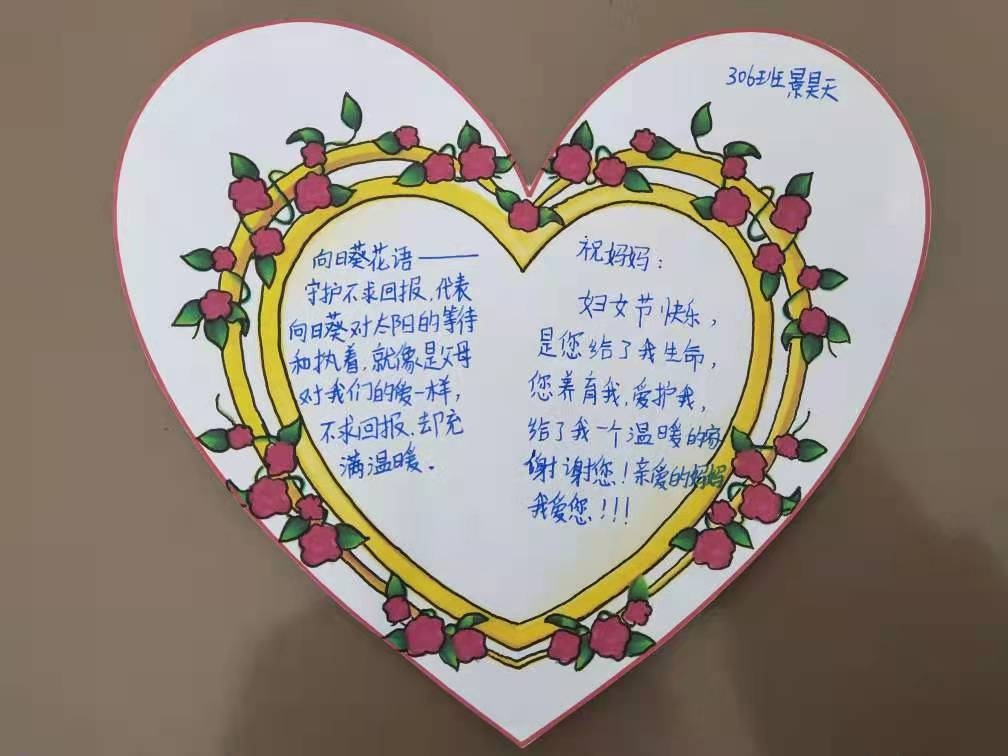 306班景昊天
向日葵花语——
守护不求回报,代表
向日葵对太阳的等待
和执着,就像是父母
对我们的爱一样,
不求回报,却充
满温暖.
祝妈妈:
妇女节快乐,
是您给了我生命,
您养育我,爱护我,
给了我一个温暖的家
谢谢您!亲爱的妈妈
我爱您!!!